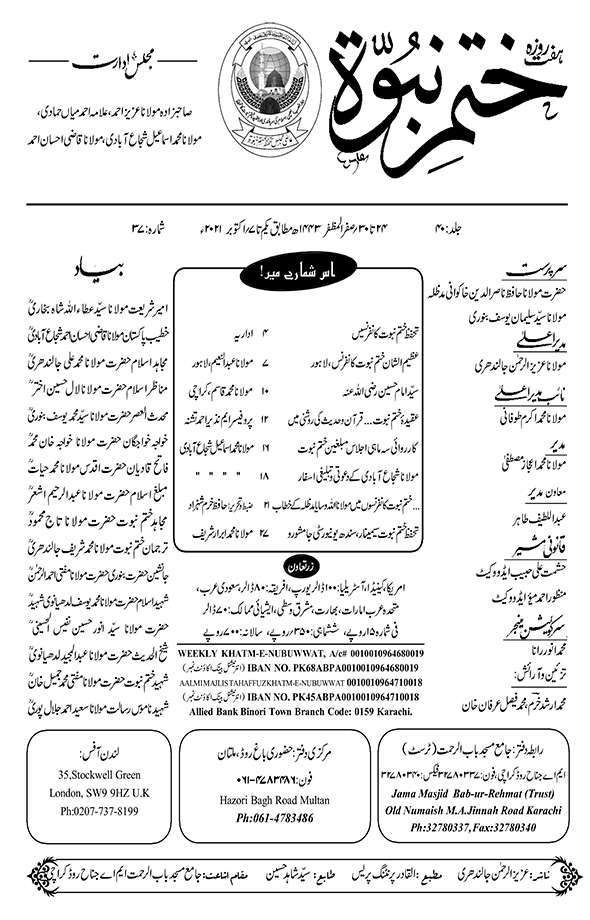 ہفت روزہ
ختم نبوۃ
مجلس ادارت
صاحبزادہ مولانا عزیز احمد، علامہ احمد میاں حمادی،
مولانا محمد اسماعیل شجاع آبادی، مولانا قاضی احسان احمد
جلد: ۴۰
۲۴ تا ۳۰ صفر المظفر ۱۴۴۳ھ مطابق یکم تا ۷ اکتوبر ۲۰۲۱ء
شمارہ: ۳۷
سرپرست
حضرت مولانا حافظ ناصر الدین خاکوانی مدظلہ
مولانا سید سلیمان یوسف بنوری
مدیر اعلیٰ
مولانا عزیز الرحمٰن جالندھری
نائب مدیر اعلیٰ
مولانا محمد اکرم طوفانی
مدیر
مولانا محمد اعجاز مصطفیٰ
معاون مدیر
عبد اللطیف طاہر
قانونی مشیر
حشمت علی حبیب ایڈووکیٹ
منظور احمد میو ایڈووکیٹ
سرکولیشن منیجر
محمد انور رانا
تزئین و آرائش:
محمد ارشد خرم، محمد فیصل عرفان خان
اس شمارے میں!
تحفظ ختم نبوت کانفرنسیں ۴ اداریہ
عظیم الشان ختم نبوت کانفرنس، لاہور ۷ مولانا عبد النعیم، لاہور
سیدنا امام حسین رضی اللہ عنہ ۱۰ مولانا محمد قاسم، کراچی
عقیدۂ ختم نبوت... قرآن و حدیث کی روشنی میں ۱۲ پروفیسر ایم نذیر احمد تشنہ
کارروائی سہ ماہی اجلاس مبلغین ختم نبوت ۱۶ مولانا محمد اسماعیل شجاع آبادی
مولانا شجاع آبادی کے دعوتی و تبلیغی اسفار ۱۸ " " " "
...ختم نبوت کانفرنسوں میں مولانا اللہ وسایا مدظلہ کے خطاب ۲۱ ضبط و تحریر: حافظ خرم شہزاد
تحفظ ختم نبوت سیمینار، سندھ یونیورسٹی جامشورو ۲۷ مولانا محمد ابرار شریف
زر تعاون
امریکا، کینیڈا، آسٹریلیا: ۱۰۰ ڈالر یورپ، افریقہ: ۸۰ ڈالر، سعودی عرب،
متحدہ عرب امارات، بھارت، مشرق وسطیٰ، ایشیائی ممالک: ۷۰ ڈالر
فی شمارہ ۱۵ روپے، ششماہی: ۳۵۰ روپے، سالانہ: ۷۰۰ روپے
WEEKLY KHATM-E-NUBUWWAT, A/c# 0010010964680019
IBAN NO. PK68ABPA0010010964680019 (انٹرنیشنل بینک اکاؤنٹ نمبر)
AALMI MAJLIS TAHAFFUZ KHATM-E-NUBUWWAT 0010010964710018
IBAN NO. PK45ABPA0010010964710018 (انٹرنیشنل بینک اکاؤنٹ نمبر)
Allied Bank Binori Town Branch Code: 0159 Karachi.
بیاد
امیر شریعت مولانا سید عطاء اللہ شاہ بخاریؒ
خطیب پاکستان مولانا قاضی احسان احمد شجاع آبادیؒ
مجاہد اسلام حضرت مولانا محمد علی جالندھریؒ
مناظر اسلام حضرت مولانا لال حسین اخترؒ
محدث العصر حضرت مولانا سید محمد یوسف بنوریؒ
خواجہ خواجگان حضرت مولانا خواجہ خان محمدؒ
فاتح قادیان حضرت اقدس مولانا محمد حیاتؒ
مبلغ اسلام حضرت مولانا عبد الرحیم اشعرؒ
مجاہد ختم نبوت حضرت مولانا تاج محمودؒ
ترجمان ختم نبوت مولانا محمد شریف جالندھریؒ
جانشین حضرت بنوری حضرت مولانا مفتی احمد الرحمٰنؒ
شہید اسلام حضرت مولانا محمد یوسف لدھیانوی شہیدؒ
حضرت مولانا سید انور حسین نفیس الحسینیؒ
شیخ الحدیث حضرت مولانا عبد المجید لدھیانویؒ
شہید ختم نبوت حضرت مولانا مفتی محمد جمیل خانؒ
شہید ناموس رسالت مولانا سعید احمد جلال پوریؒ
رابطہ دفتر: جامع مسجد باب الرحمت (ٹرسٹ)
ایم اے جناح روڈ کراچی، فون: ۳۲۷۸۰۳۳۷ فیکس: ۳۲۷۸۰۳۴۰
Jama Masjid Bab-ur-Rehmat (Trust)
Old Numaish M.A.Jinnah Road Karachi
Ph:32780337, Fax:32780340
مرکزی دفتر: حضوری باغ روڈ، ملتان
فون: ۰۶۱-۴۷۸۳۴۸۶
Hazori Bagh Road Multan
Ph:061-4783486
لندن آفس:
35,Stockwell Green
London, SW9 9HZ U.K
Ph:0207-737-8199
ناشر: عزیز الرحمٰن جالندھری مطبع: القادر پرنٹنگ پریس طابع: سید شاہد حسین مقام اشاعت: جامع مسجد باب الرحمت ایم اے جناح روڈ کراچی